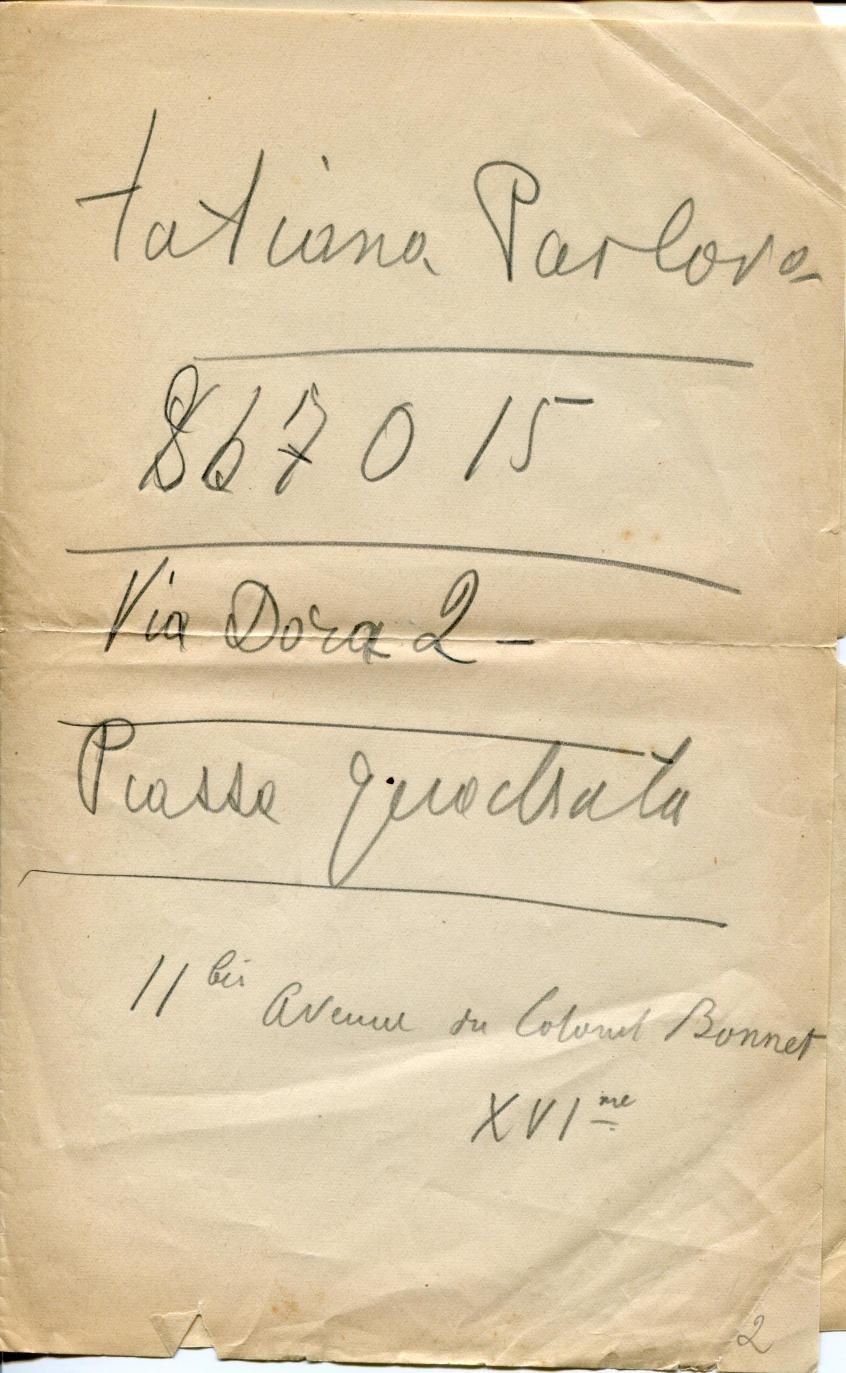 tatiana Pavlova
867 0 15
Via Dora 2 -
Piassa quadrata
11 bis Avenue du Colonel Bonnet
XVI me
2